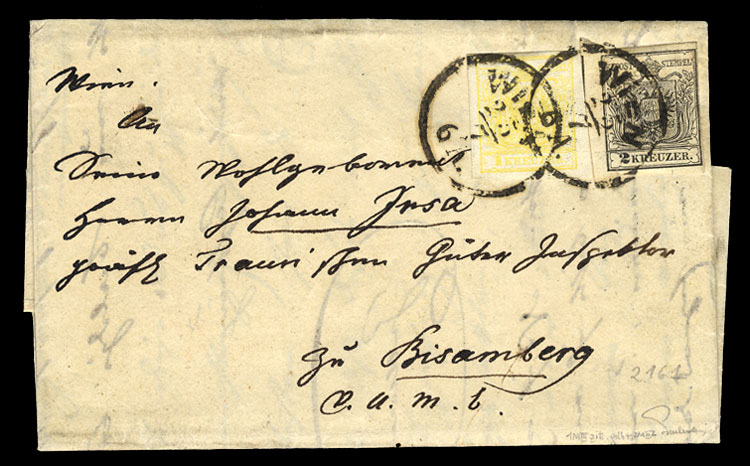 WIEN
WIEN
STEMPEL
1 KREUZER.
2 KREUZER.
Wien.
An
Seine Wohlgeboren
Herrn Johann Jesa
gräfl Traun'schen Güter Inspektor
zu Bisamberg
V. U. M. B.
2161